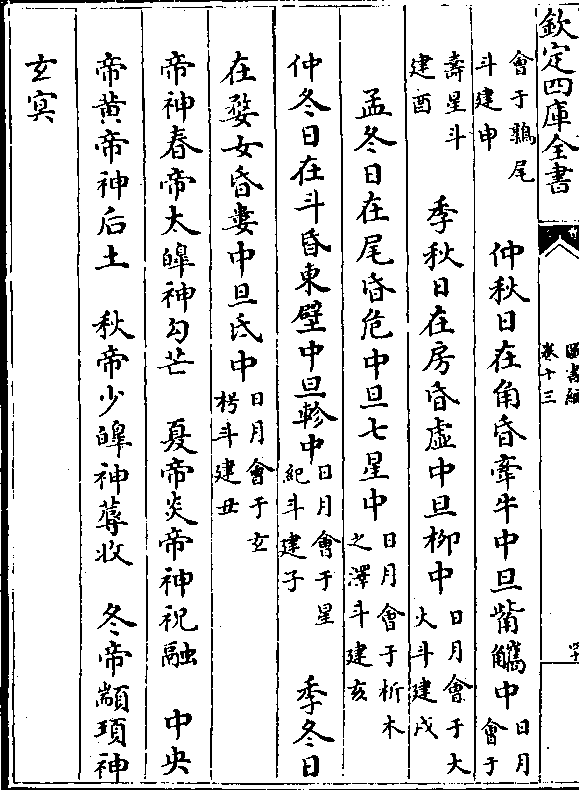 欽定四庫全書
圖書編
卷十三
會于鶉尾斗建申 仲秋日在角昏牽牛中旦觜觿中日月會于
壽星斗建酉 季秋日在房昏虛中旦柳中日月會于大火斗建戌
孟冬日在尾昏危中旦七星中日月會于析木之澤斗建亥
仲冬日在斗昏東壁中旦軫中日月會于星紀斗建子 季冬日
在婺女昏婁中旦氐中日月會于玄枵斗建丑
帝神春帝太皞神勾芒 夏帝炎帝神祝融 中央
帝黄帝神后土 秋帝少皞神蓐收 冬帝顓頊神
玄冥